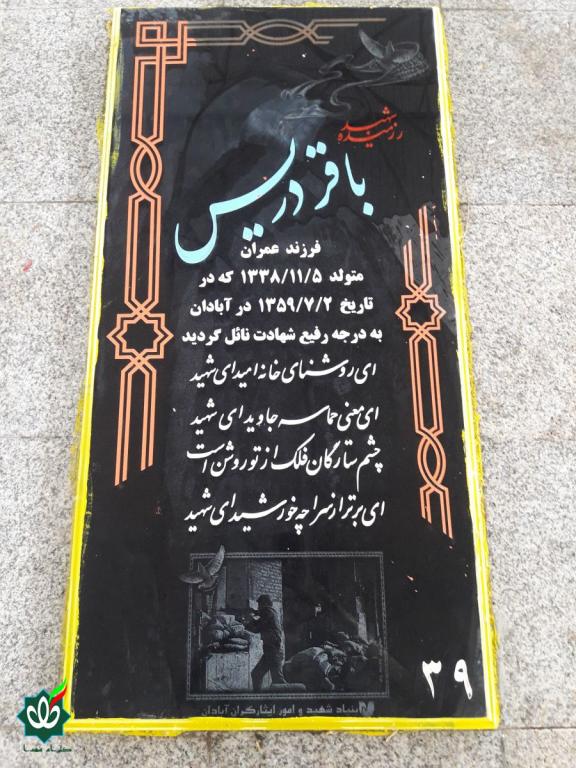 شهید
رزمنده
باقر دریس
فرزند عمران
متولد ۱۳۳۸/۱۱/۵ که در
تاریخ ۱۳۵۹/۷/۲ در آبادان
به درجه رفیع شهادت نائل گردید
ای روشنای خانه امید ای شهید
ای معنی حماسه جاوید ای شهید
چشم ستارگان فلک از تو روشن است
ای برتر از سراچه خورشید ای شهید
بنیاد شهید و امور ایثارگران آبادان
۳۹